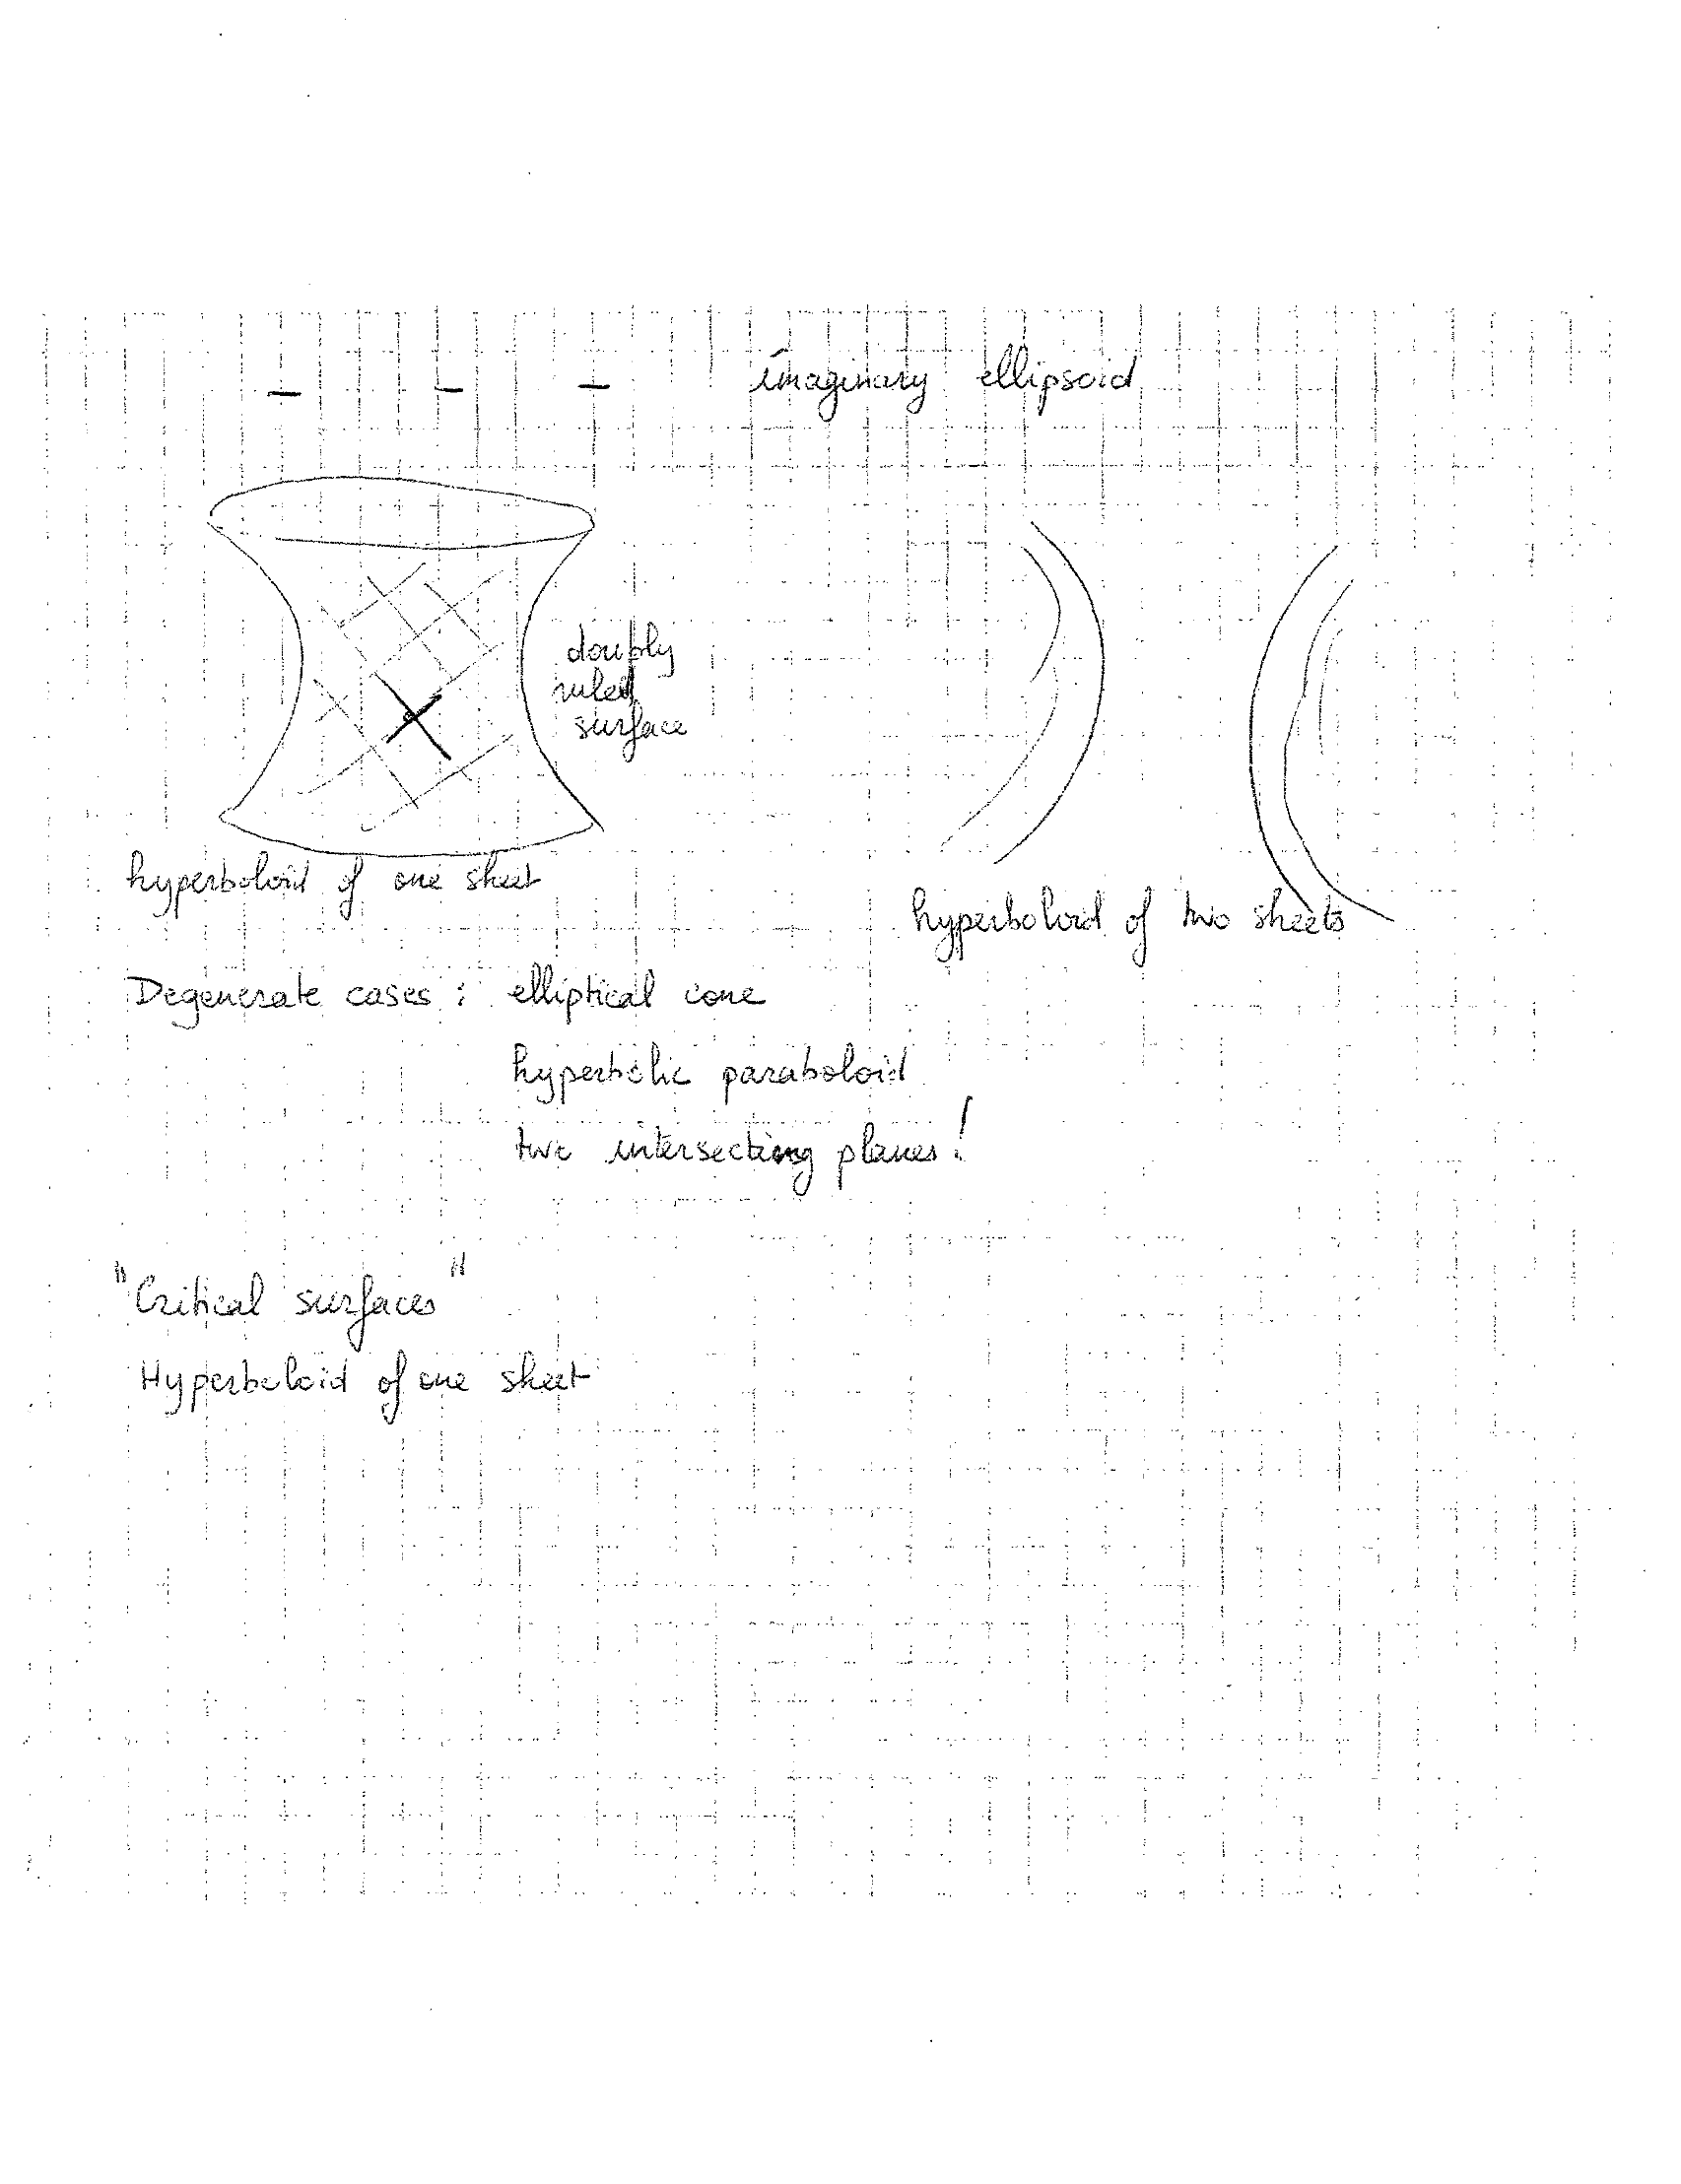 – – – imaginary ellipsoid
doubly
ruled
surface
hyperboloid of one sheet
hyperboloid of two sheets
Degenerate cases : elliptical cone
hyperbolic paraboloid
two intersecting planes!
"Critical surfaces"
Hyperboloid of one sheet